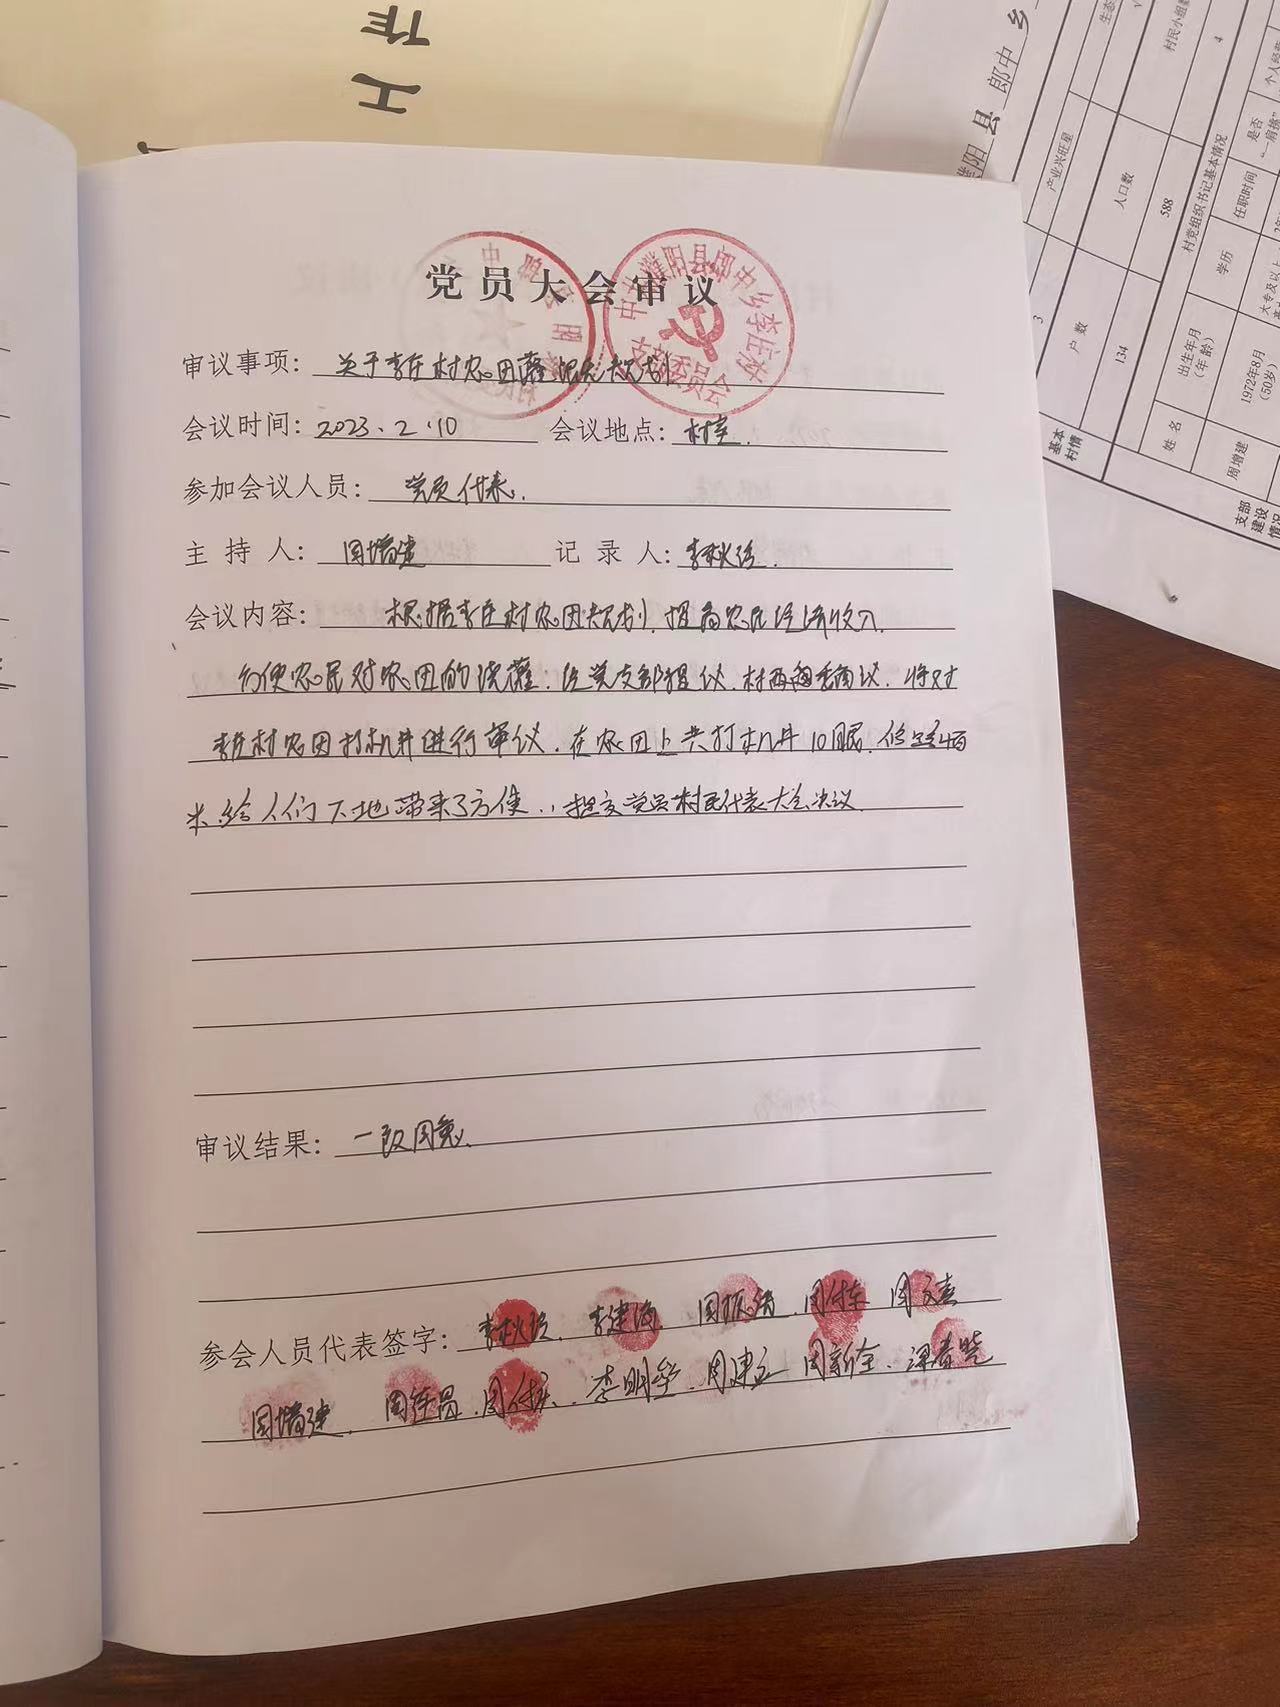 工作
党员大会审议
中共濮阳县郎中乡李庄村
支部委员会
审议事项：关于李庄村农田灌溉规划
会议时间：2023.2.10 会议地点：村室.
参加会议人员：党员代表.
主持人：周增建 记录人：李秋珍.
会议内容：根据李庄村农田规划.提高农民经济收入.
方便农民对农田的浇灌.经党支部提议.村两委商议.将对
李庄村农田打机井进行审议.在农田上共打机井10眼.修路
米.给人们下地带来了方便..提交党员村民代表大会决议.
审议结果：一致同意.
参会人员代表签字：李秋珍.李建海 周振 周付东 周文喜
周增建.周连昌.周付 .李明 .周建立 周新全.
濮阳县郎中乡
基本村情
户数
134
产业兴旺星
3
人口数
588
村民小组
4
村党组织书记基本情况
姓名
周增建
出生年月(年龄)
1972年8月(50岁)
学历
大专及以上
任职时间
是否“一肩挑”
支部建设情况